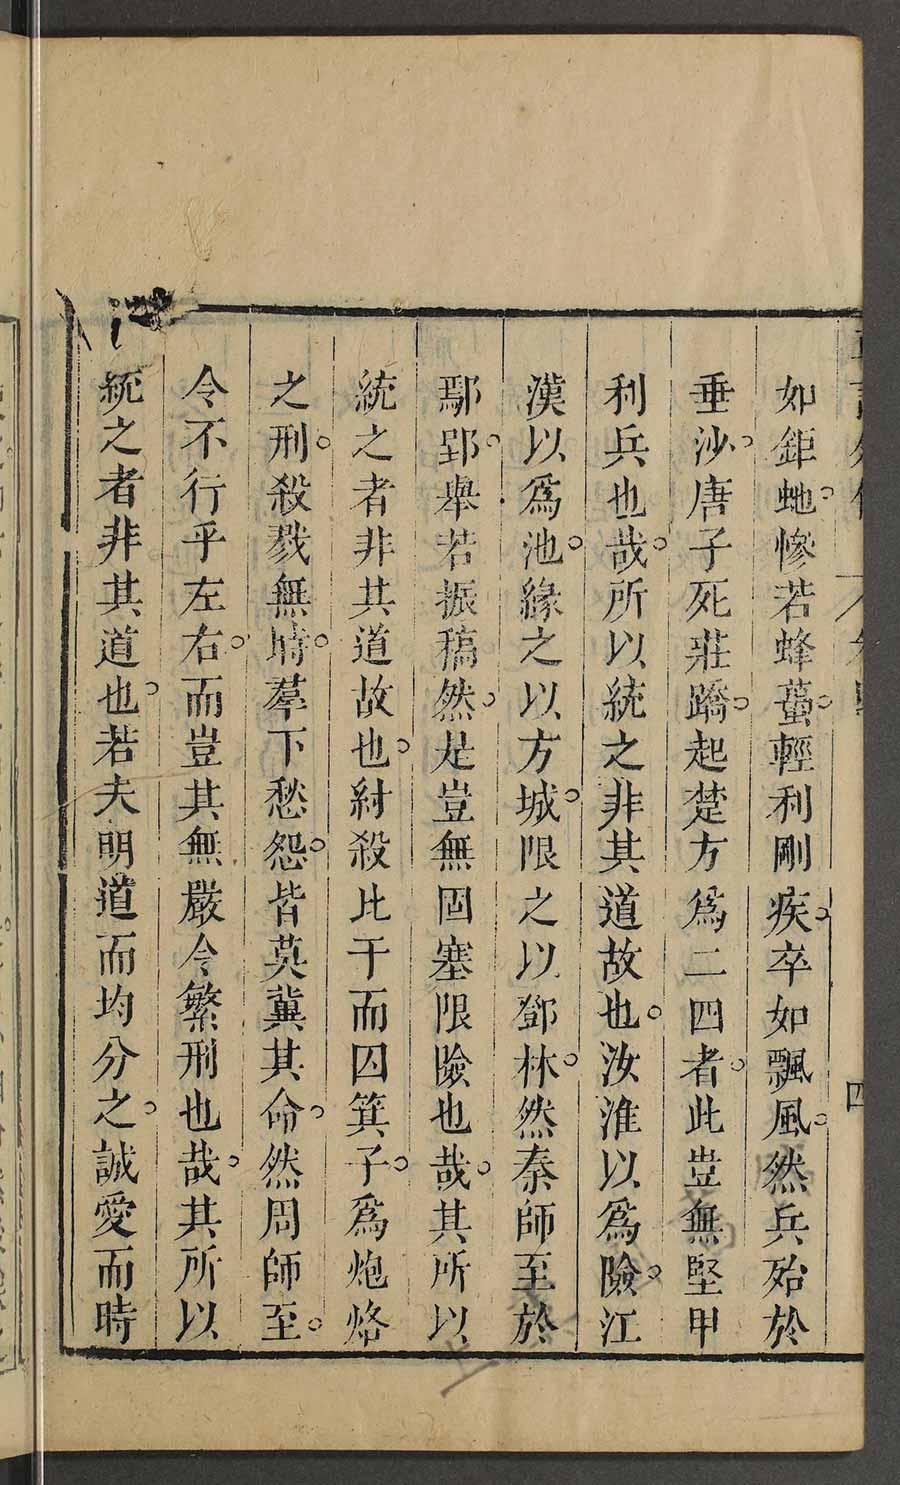 如鉅虵。慘若蜂蠆。輕利剛疾。卒如飄風。然兵殆於
垂沙。唐子死莊蹻。起楚方爲二四者。此豈無堅甲
利兵也哉。所以統之非其道故也。汝淮以爲險。江
漢以爲池。緣之以方城。限之以鄧林。然秦師至於
鄢郢。舉若振槁然。是豈無固塞限險也哉。其所以
統之者非其道故也。紂殺比干而囚箕子。爲炮烙
之刑。殺戮無時。羣下愁怨。皆莫冀其命。然周師至。
令不行乎左右。而豈其無嚴令繁刑也哉。其所以
統之者非其道也。若夫明道而均分之。誠愛而時